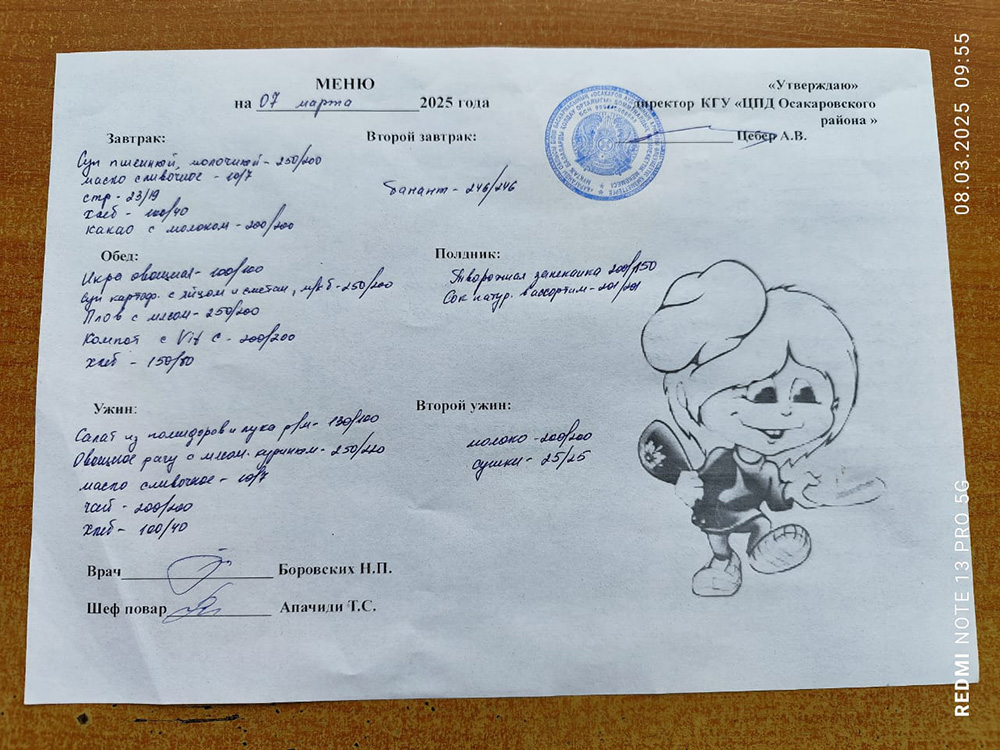 МЕНЮ
на 07 марта 2025 года
«Утверждаю»
директор КГУ «ЦПД Осакаровского
района »
Цебер А.В.
Завтрак:
Суп пшенный, молочный - 250/200
масло сливочное - 10/7
сыр - 23/19
хлеб - 100/40
какао с молоком - 200/200
Второй завтрак:
банант - 246/246
Обед:
Икра овощная - 100/100
Суп картоф. с яйцом и сметан, м/б - 250/200
Плов с мясом - 250/200
Компот с Vit C - 200/200
хлеб - 150/80
Полдник:
Творожная запеканка 200/150
Сок натур. в ассортим - 201/201
Ужин:
Салат из помидоров и лука р/м - 130/100
Овощное рагу с мясом куриным - 250/220
масло сливочное - 10/7
чай - 200/200
хлеб - 100/40
Второй ужин:
молоко - 200/200
сушки - 25/25
Врач Боровских Н.П.
Шеф повар Апачиди Т.С.
REDMI NOTE 13 PRO 5G 08.03.2025 09:55